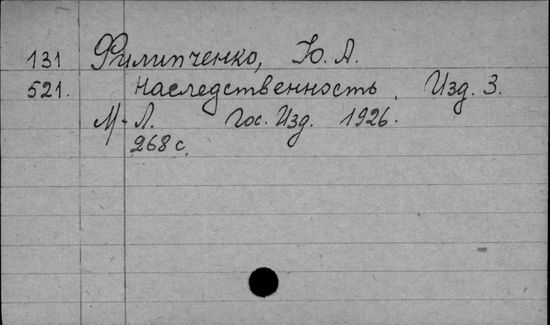 131 Филипченко, Ю. А.
521. Наследственность. Изд. 3.
М-Л. Гос. Изд. 1926.
268 с.